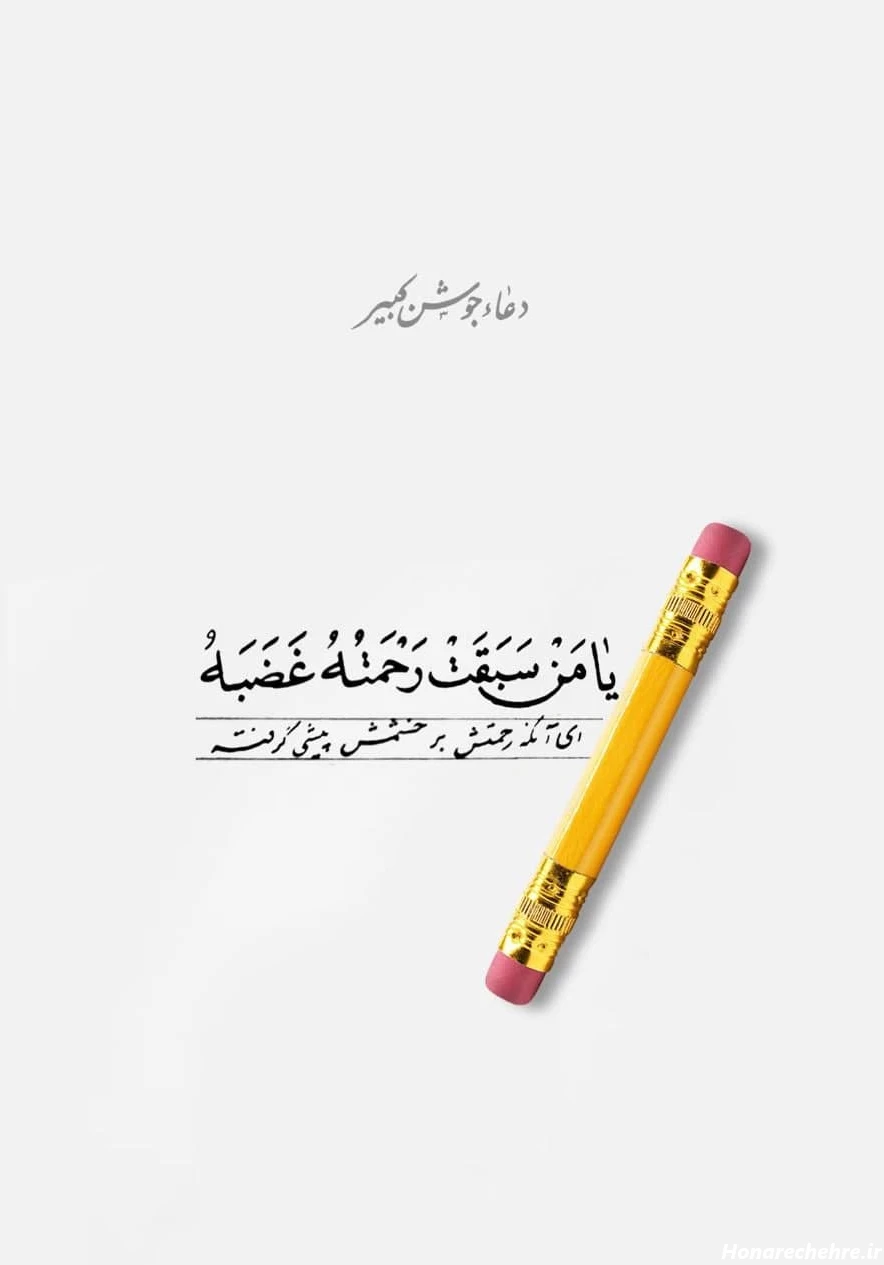 دعاء جوشن کبیر
یٰا مَنْ سَبَقَتْ رَحْمَتُهُ غَضَبَهُ
ای آنکه رحمتش بر خشمش پیشی گرفته
Honarechehre.ir